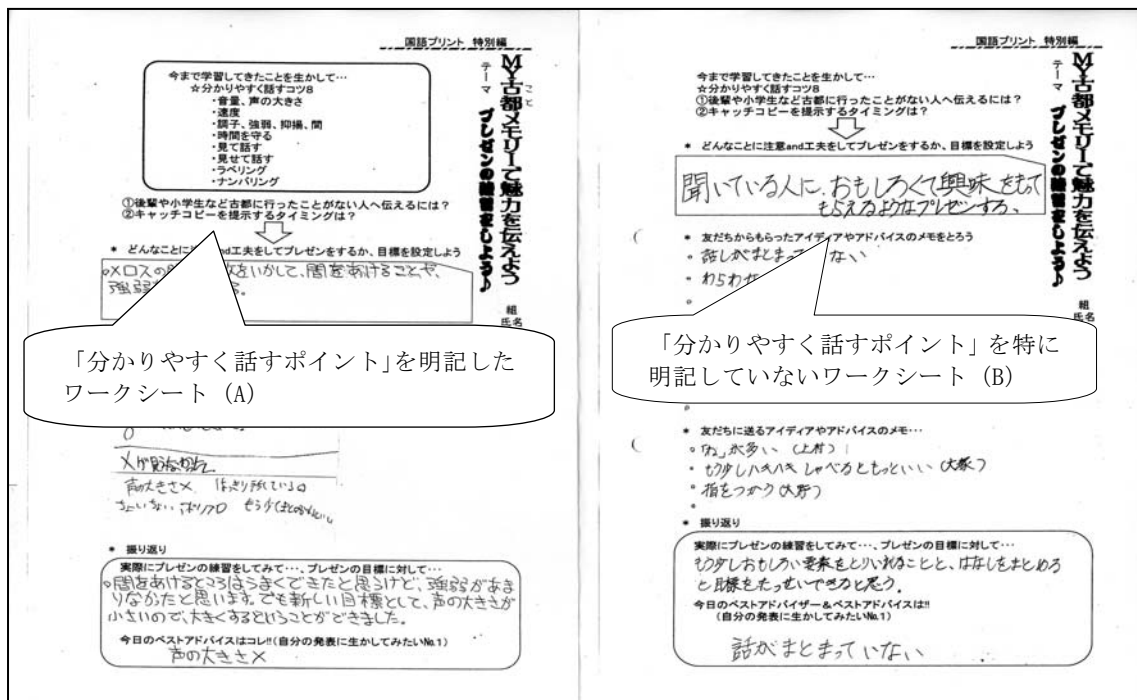 国語プリント 特別編
MY古都メモリーで魅力を伝えよう
こと
テーマ プレゼンの練習をしよう♪
組
氏名
今まで学習してきたことを生かして…
☆分かりやすく話すコツ8
・音量、声の大きさ
・速度
・調子、強弱、抑揚、間
・時間を守る
・見て話す
・見せて話す
・ラベリング
・ナンバリング
①後輩や小学生など古都に行ったことがない人へ伝えるには？
②キャッチコピーを提示するタイミングは？
* どんなことに and工夫をしてプレゼンをするか、目標を設定しよう
メロスの をいかして、間をあけることや、
強弱
「分かりやすく話すポイント」を明記した
ワークシート (A)
声の大きさ×
* 振り返り
実際にプレゼンの練習をしてみて…、プレゼンの目標に対して…
間をあけるところはうまくできたと思うけど、強弱があま
りなかったと思います。でも新しい目標として、声の大きさが
小さいので、大きくするということができました。
今日のベストアドバイスはコレ!!(自分の発表に生かしてみたい№1)
声の大きさ×
国語プリント 特別編
MY古都メモリーで魅力を伝えよう
テーマ プレゼンの練習をしよう♪
組
氏名
今まで学習してきたことを生かして…
☆分かりやすく話すコツ8
①後輩や小学生など古都に行ったことがない人へ伝えるには？
②キャッチコピーを提示するタイミングは？
* どんなことに注意and工夫をしてプレゼンをするか、目標を設定しよう
聞いている人に、おもしろくて興味をもって
もらえるようなプレゼンする、
* 友だちからもらったアイディアやアドバイスのメモをとろう
・話しがまとまっ ない
・わらわせ
「分かりやすく話すポイント」を特に
明記していないワークシート (B)
* 友だちに送るアイディアやアドバイスのメモ…
・「ね」が多い (上村)
・もう少しハキハキしゃべるともっといい (大塚)
・指をつかう (大野)
* 振り返り
実際にプレゼンの練習をしてみて…、プレゼンの目標に対して…
もう少しおもしろい要素をとりいれることと、はなしをまとめる
と目標をたっせいできると思う。
今日のベストアドバイザー＆ベストアドバイスは!!
(自分の発表に生かしてみたい№1)
話がまとまっていない